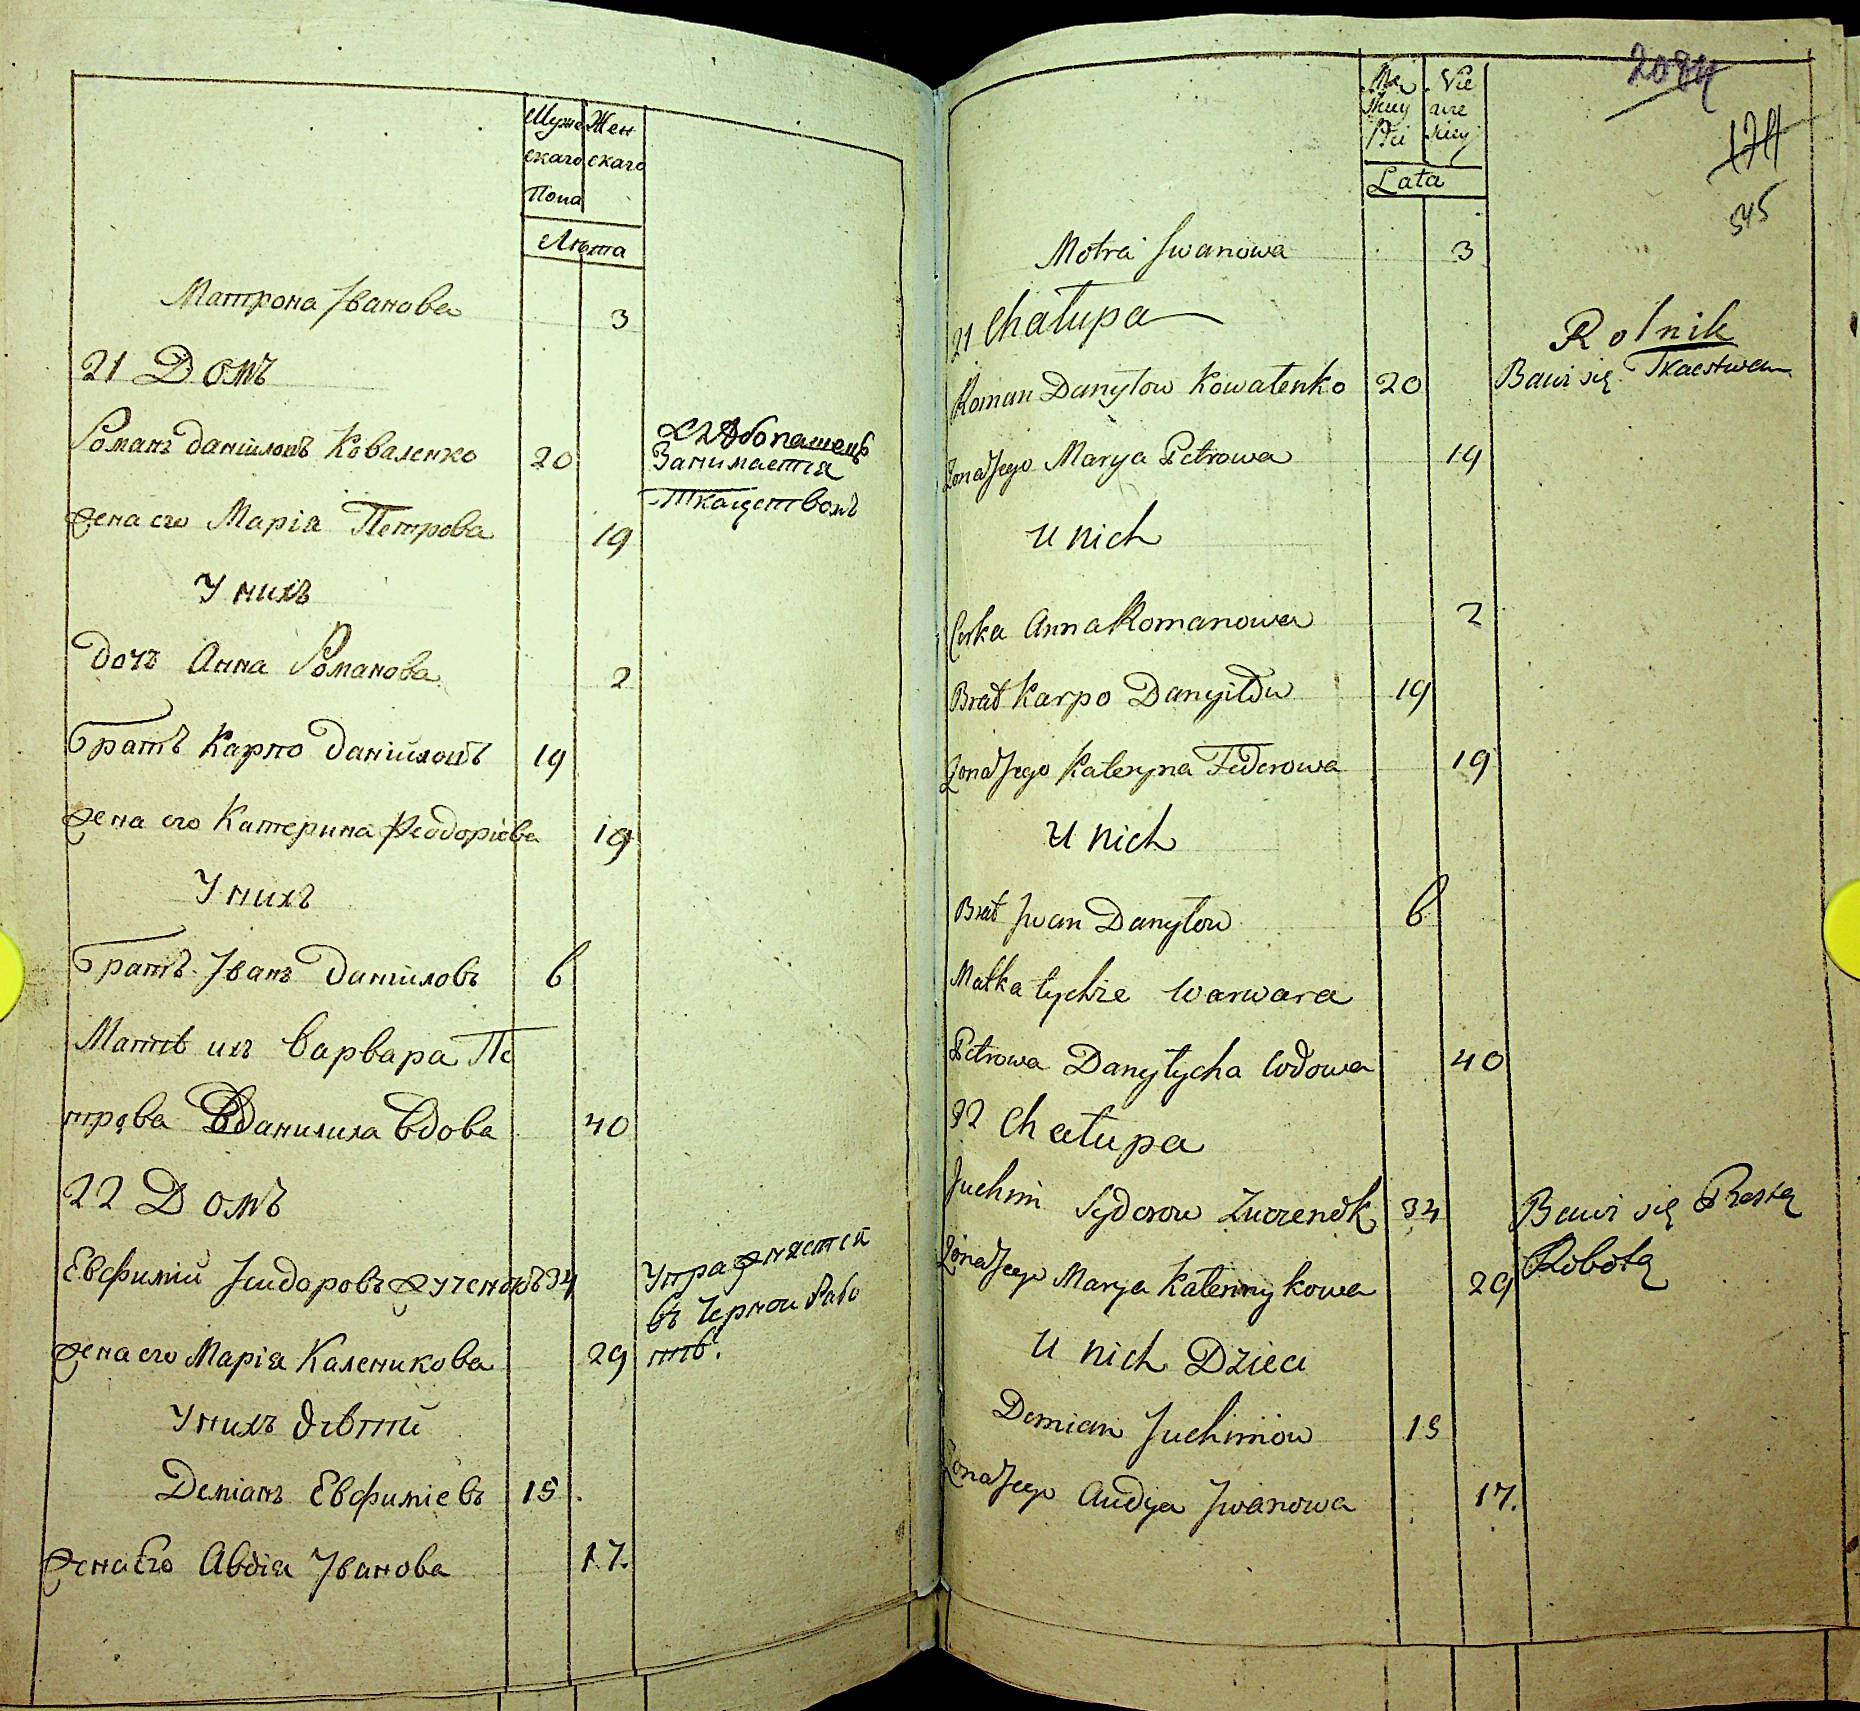 Муже Жен
скаго скаго
Пола
Лѣта
Матрона Іванова 3
21 Домъ
Романъ Данііловъ Коваленко 20 Хлѣбопашецъ
Занимается
Ткацствомъ
жена его Марія Петрова 19
У нихъ
Дочъ Анна Романова 2
Братъ Карпо Данііловъ 19
жена его Катерина Феодоріева 19
У нихъ
Братъ Іванъ Данііловъ 6
Матѣ ихъ Варвара Пе
трова Данилиха Вдова 40
22 Домъ
Евфимій Ісидоровъ 34 Упражняется
въ Чорной Рабо
тѣ.
жена его Марія Каленикова 29
У нихъ Дѣтти
Деміанъ Евфиміевъ 15.
жена Его Авдія Іванова 17.
2084
174
545
Lata
Motra Jwanowa 3
21 Chałupa
Rolnik
Roman Danyłow Kowalenko 20 Bawi się Tkactwem
Żona Jego Marya Petrowa 19
U nich
Corka Anna Romanowa 2
Brat Karpo Danyiłow 19
Żona Jego Kateryna Federowa 19
U nich
Brat Jwan Danyłow 6
Matka tychże Warwara
Petrowa Danyłycha Wdowa 40
22 Chałupa
Juchim Sydorow 34 Bawi się Prostą
Robotą
Żona Jego Marya Kalennykowa 29
U nich Dzieci
Demian Juchimow 15
Żona Jego Audya Jwanowa 17.